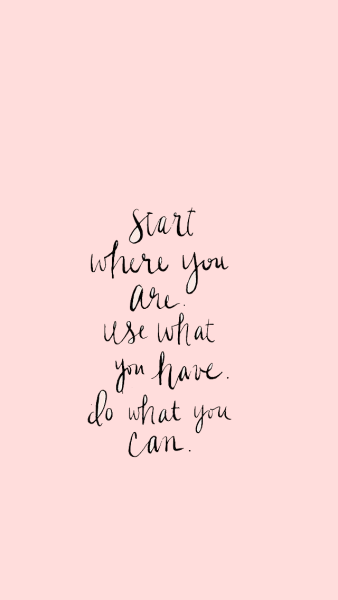 start
where you
are.
use what
you have.
do what you
can.